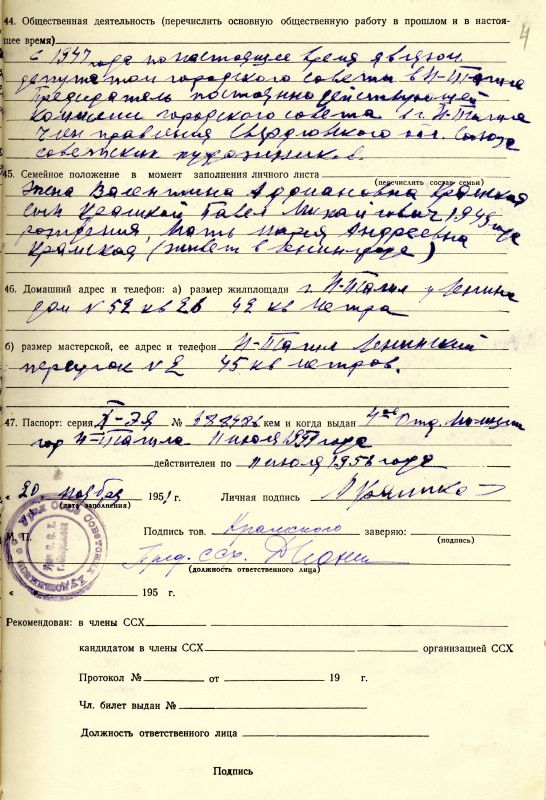 4
44. Общественная деятельность (перечислить основную общественную работу в прошлом и в настоя-
щее время)
С 1947 года по настоящее время являюсь
депутатом городского совета в Н-Тагиле
Председатель постоянно действующей
комиссии городского совета в г. Н-Тагиле
Член правления Свердловского обл. Союза
советских художников.
45. Семейное положение в момент заполнения личного листа
(перечислить состав семьи)
Жена Валентина Адриановна Крамская
сын Крамской Павел Михайлович 1949 года
рождения, Мать Мария Андреевна
Крамская (живет в Ленинграде)
46. Домашний адрес и телефон: а) размер жилплощади г. Н-Тагил у Ленина
дом № 52 кв 26 42 кв метра
б) размер мастерской, ее адрес и телефон Н-Тагил Ленинский
переулок № 2 45 кв метров.
47. Паспорт: серия X-ЭЯ № кем и когда выдан 4ое Отд. Милиции
гор Н-Тагила 11 июля 195 года
действителен по 11 июля 1956 года
« 20 » ноября 1951 г. Личная подпись
(дата заполнения)
М. П. Подпись тов. Крамского заверяю:
(подпись)
Пред. ССХ.
(должность ответственного лица)
« » 195 г.
Рекомендован: в члены ССХ
кандидатом в члены ССХ организацией ССХ
Протокол № от 19 г.
Чл. билет выдан №
Должность ответственного лица
Подпись